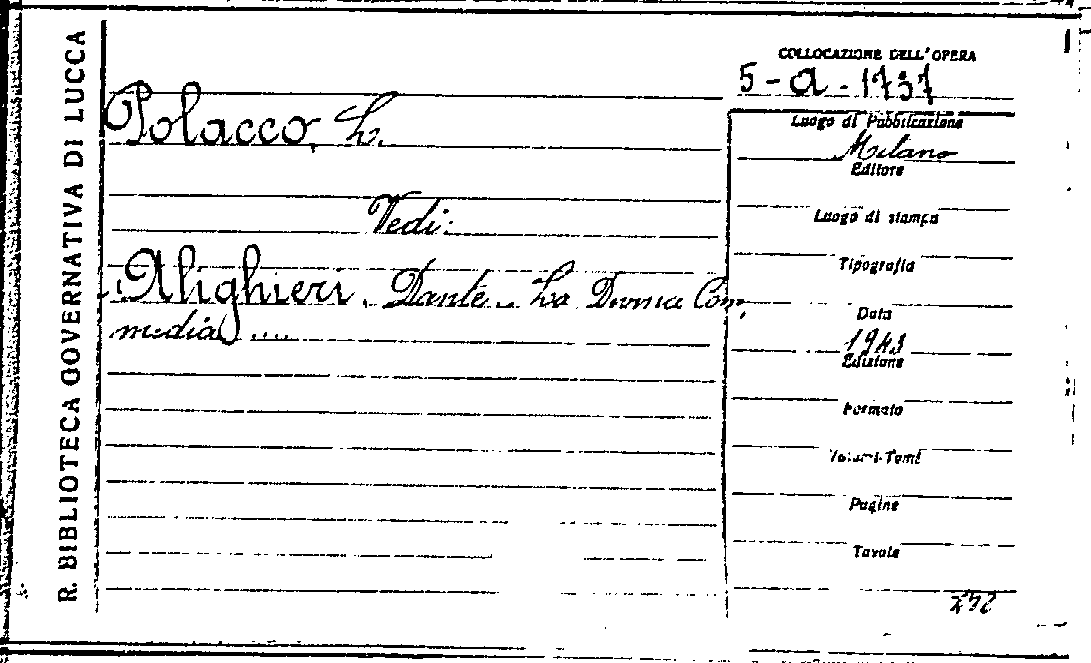 R. BIBLIOTECA GOVERNATIVA DI LUCCA
COLLOCAZIONE DELL'OPERA
5-a-1737
Polacco, L.
Vedi:
Alighieri, Dante. La Divina Com,
media ....
Luogo di Pubblicazione
Milano
Editore
Luogo di stampa
Tipografia
Data
1943
Edizione
Formato
Volumi-Tomi
Pagine
Tavole